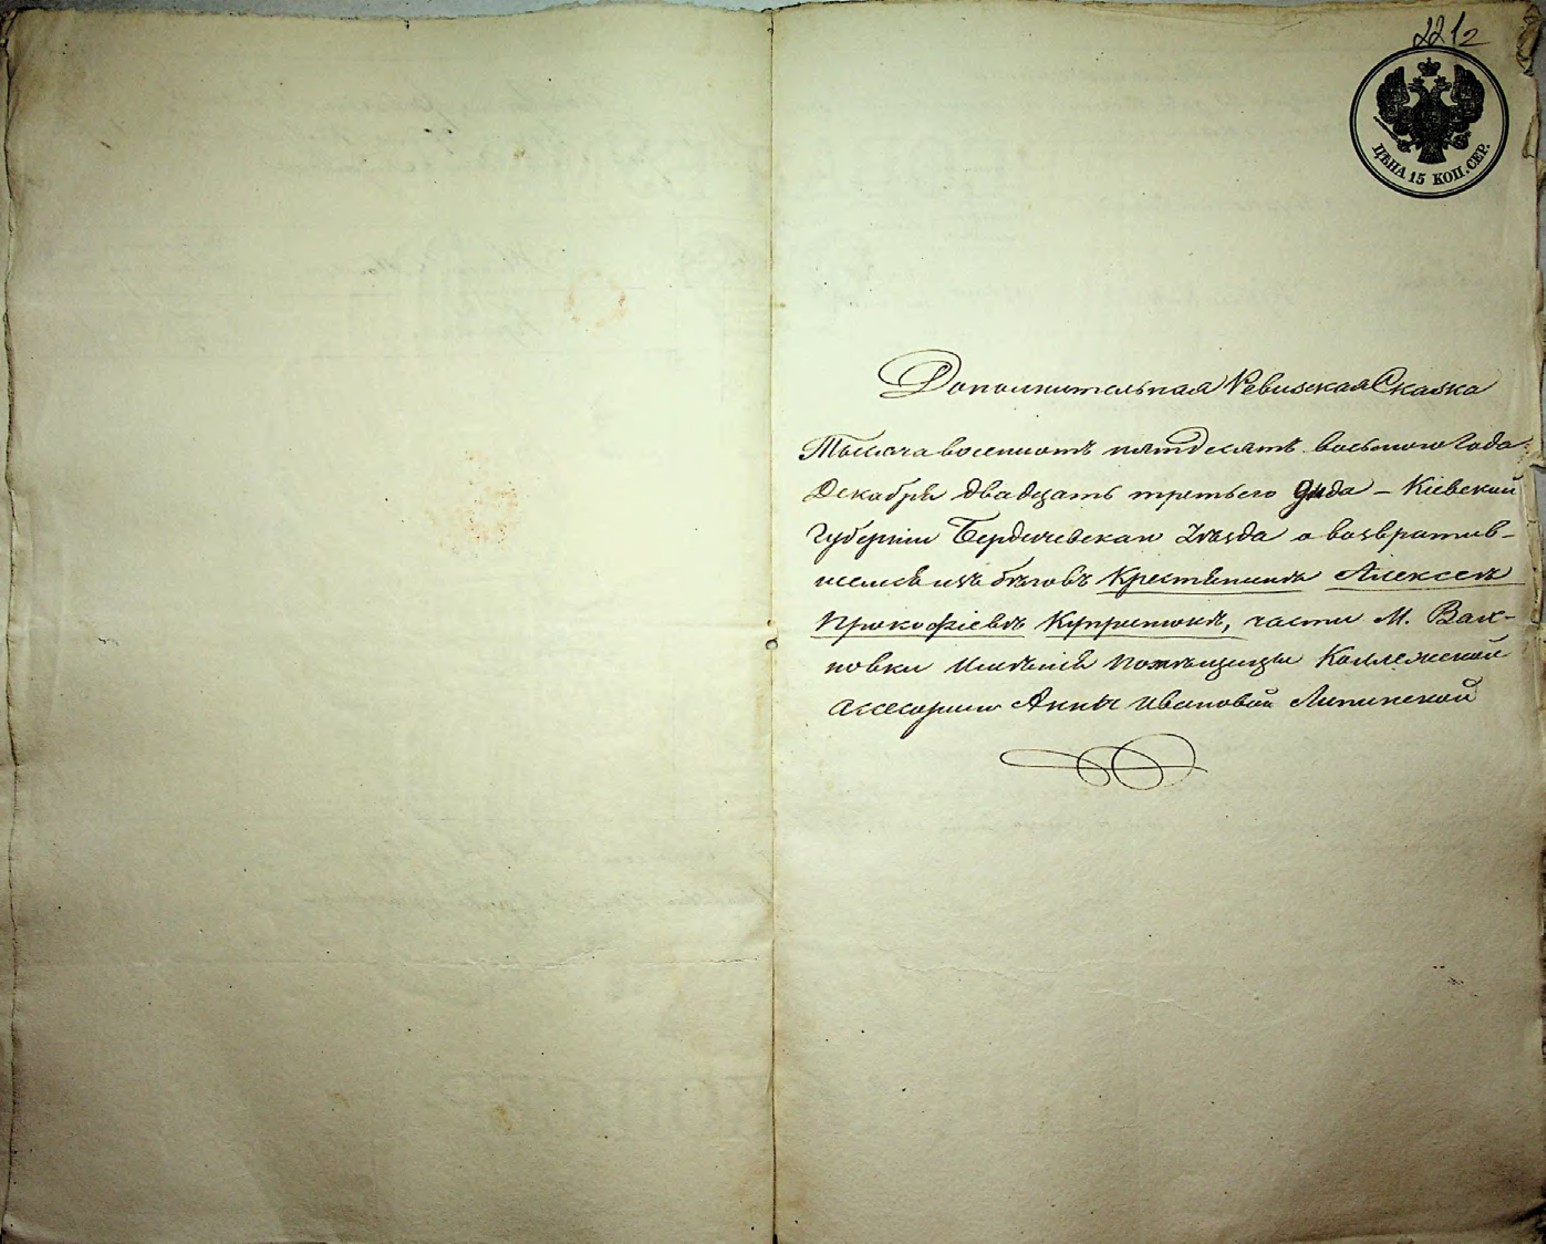 2212
ЦѢНА 15 КОП. СЕР.
Дополнительная Ревизская Сказка
Тысяча восемьсотъ пятдесятъ восьмого Года
Декабря двадцать третьего дня – Кіевской
Губерніи Бердичевскаго Уѣзда о возвратив-
шемся изъ бѣговъ Крестьянинѣ Алексеѣ
Прокофіевѣ Купріянѣ, части М. Вах-
новки имѣнія помѣщицы Коллежской
Асесорши Анны Ивановой Липинской